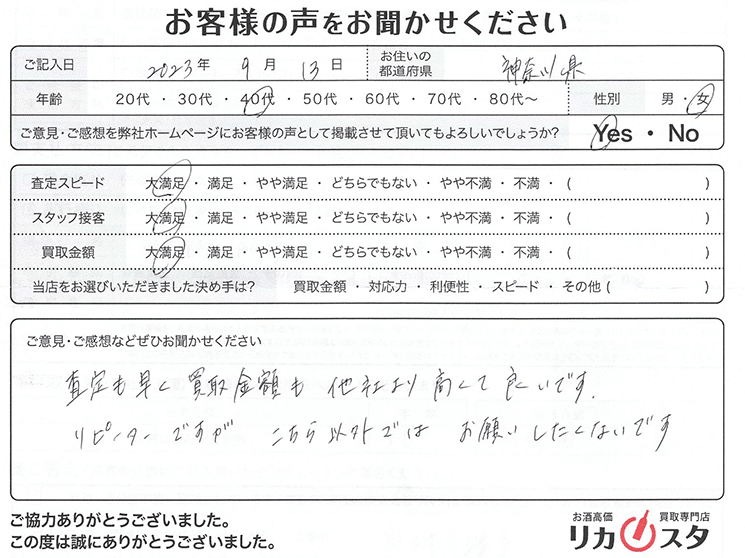 お客様の声をお聞かせください
ご記入日 2023年 9月 13日 お住いの都道府県 神奈川県
年齢 20代・30代・40代・50代・60代・70代・80代〜 性別 男・女
ご意見・ご感想を弊社ホームページにお客様の声として掲載させて頂いてもよろしいでしょうか? Yes・No
査定スピード 大満足・満足・やや満足・どちらでもない・やや不満・不満・( )
スタッフ接客 大満足・満足・やや満足・どちらでもない・やや不満・不満・( )
買取金額 大満足・満足・やや満足・どちらでもない・やや不満・不満・( )
当店をお選びいただきました決め手は? 買取金額・対応力・利便性・スピード・その他( )
ご意見・ご感想などぜひお聞かせください
査定も早く買取金額も他社より高くて良いです.
リピーターですが こちら以外では お願いしたくないです
ご協力ありがとうございました。
この度は誠にありがとうございました。
お酒高価 買取専門店
リカスタ